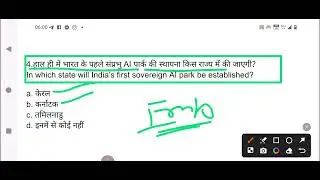 06:00
4.हाल ही में भारत के पहले संप्रभु AI पार्क की स्थापना किस राज्य में की जाएगी?
In which state will India's first sovereign AI park be established?
a. केरल
b. कर्नाटक
c. तमिलनाडु
d. इनमें से कोई नहीं